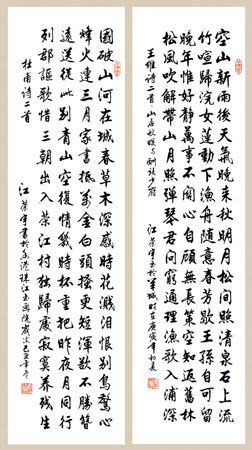 空山新雨後天氣晚來秋明月松間照清泉石上流
竹喧歸浣女蓮動下漁舟隨意春芳歇王孫自可留
晚年惟好靜萬事不關心自顧無長策空知返舊林
松風吹解帶山月照彈琴君問窮通理漁歌入浦深
王維詩二首山居秋暝酬張少府 江榮宇書於羊城時在庚寅年初夏
國破山河在城春草木深感時花濺淚恨別鳥驚心
烽火連三月家書抵萬金白頭搔更短渾欲不勝簪
遠送從此別青山空復情幾時杯重把昨夜月同行
列郡謳歌惜三朝出入榮江村獨歸處寂寞養殘生
杜甫詩二首 江榮宇書於珠江